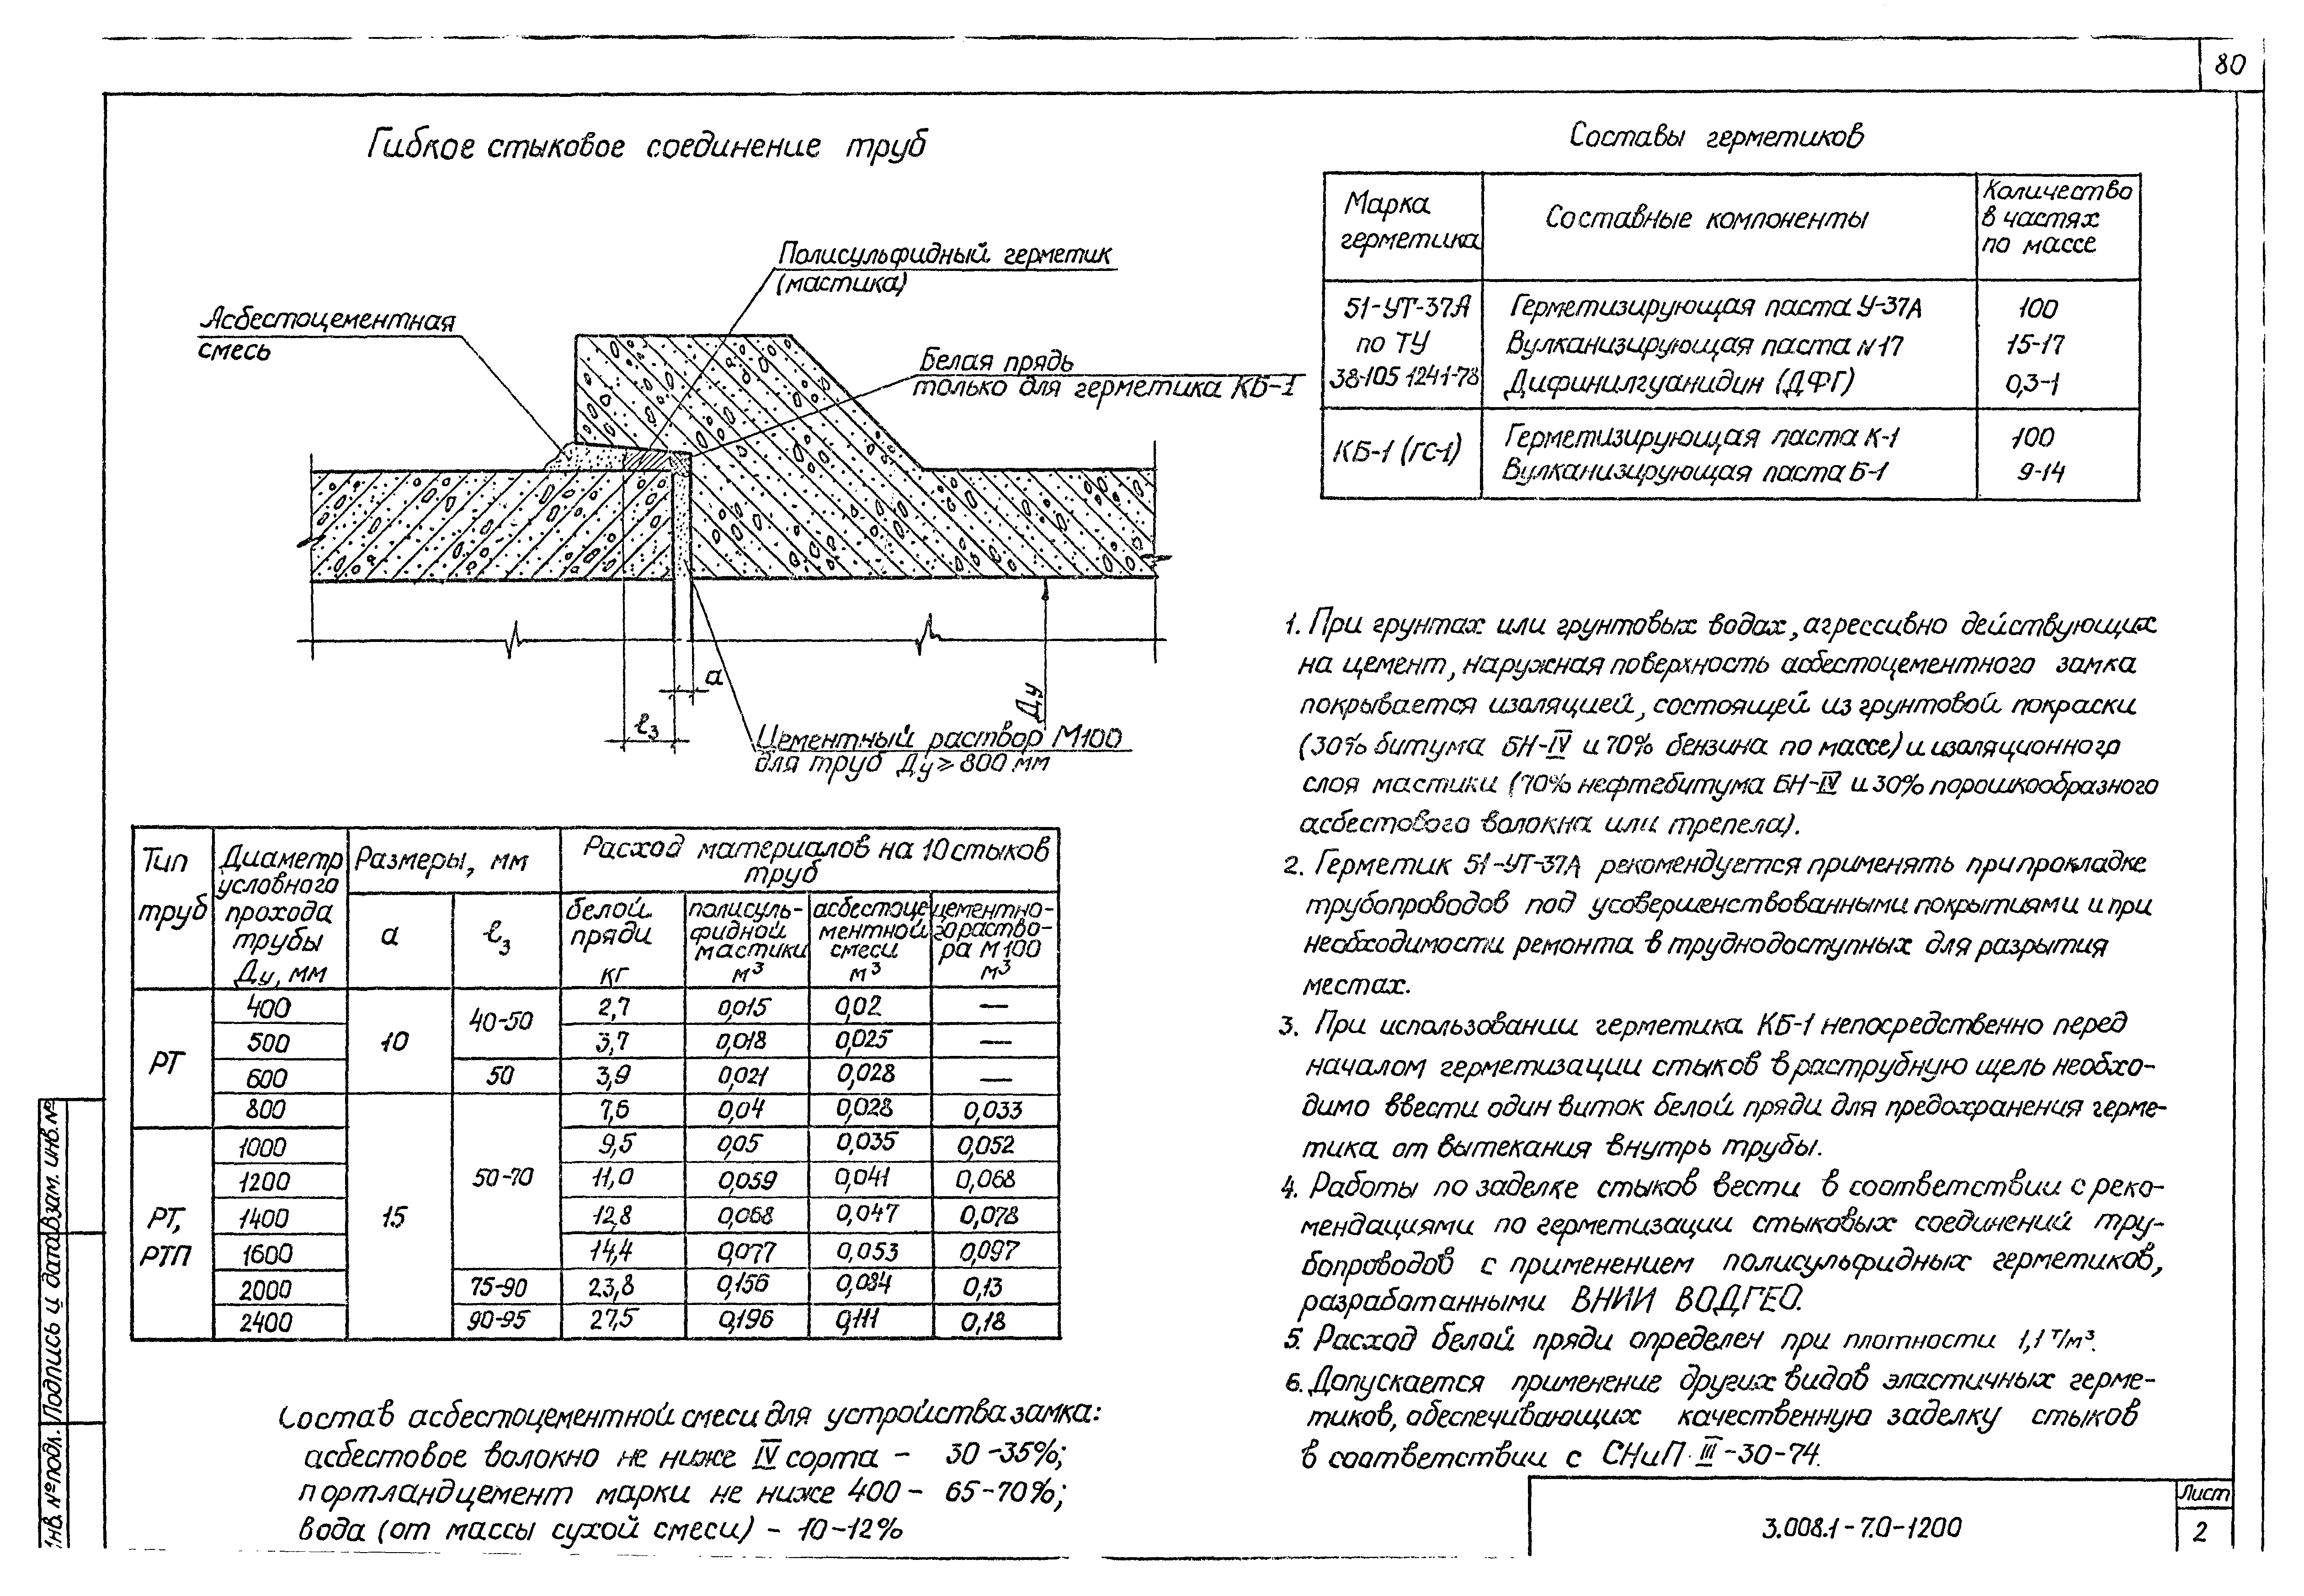 80
Гибкое стыковое соединение труб
Полисульфидный герметик
(мастика)
Асбестоцементная
смесь
Белая прядь
только для герметика КБ-1
а
ℓ3
Ду
Цементный раствор М100
для труб Ду ≥ 800 мм
Тип труб | Диаметр условного прохода трубы Ду, мм | Размеры, мм | Расход материалов на 10 стыков труб
а | ℓ3 | белой пряди кг | полисульфидной мастики м³ | асбестоцементной смеси м³ | цементного раствора М100 м³
РТ | 400 | 10 | 40-50 | 2,7 | 0,015 | 0,02 | —
500 | 3,7 | 0,018 | 0,025 | —
600 | 50 | 3,9 | 0,021 | 0,028 | —
800 | 15 | 50-70 | 7,6 | 0,04 | 0,028 | 0,033
РТ, РТП | 1000 | 9,5 | 0,05 | 0,035 | 0,052
1200 | 11,0 | 0,059 | 0,041 | 0,068
1400 | 12,8 | 0,068 | 0,047 | 0,078
1600 | 14,4 | 0,077 | 0,053 | 0,097
2000 | 75-90 | 23,8 | 0,156 | 0,084 | 0,13
2400 | 90-95 | 27,5 | 0,196 | 0,111 | 0,18
Состав асбестоцементной смеси для устройства замка:
асбестовое волокно не ниже IV сорта - 30-35%;
портландцемент марки не ниже 400 - 65-70%;
вода (от массы сухой смеси) - 10-12%
Составы герметиков
Марка герметика | Составные компоненты | Количество в частях по массе
51-УТ-37А | Герметизирующая паста У-37А | 100
по ТУ | Вулканизирующая паста N17 | 15-17
38-105 1241-78 | Дифинилгуанидин (ДФГ) | 0,3-1
КБ-1 (ГС-1) | Герметизирующая паста К-1 | 100
Вулканизирующая паста Б-1 | 9-14
1. При грунтах или грунтовых водах, агрессивно действующих
на цемент, наружная поверхность асбестоцементного замка
покрывается изоляцией, состоящей из грунтовой покраски
(30% битума БН-IV и 70% бензина по массе) и изоляционного
слоя мастики (70% нефтебитума БН-IV и 30% порошкообразного
асбестового волокна или трепела).
2. Герметик 51-УТ-37А рекомендуется применять при прокладке
трубопроводов под усовершенствованными покрытиями и при
необходимости ремонта в труднодоступных для разрытия
местах.
3. При использовании герметика КБ-1 непосредственно перед
началом герметизации стыков в раструбную щель необхо-
димо ввести один виток белой пряди для предохранения герме-
тика от вытекания внутрь трубы.
4. Работы по заделке стыков вести в соответствии с реко-
мендациями по герметизации стыковых соединений тру-
бопроводов с применением полисульфидных герметиков,
разработанными ВНИИ ВОДГЕО.
5. Расход белой пряди определен при плотности 1,1 т/м³.
6. Допускается применение других видов эластичных герме-
тиков, обеспечивающих качественную заделку стыков
в соответствии с СНиП III-30-74.
3.008.1-7.0-1200
Лист
2
Инв. № подл. Подпись и дата Взам. инв. №